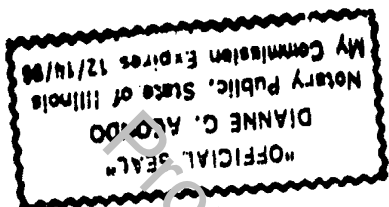 "OFFICIAL SEAL"
DIANNE C.
Notary Public, State of Illinois
My Commission Expires